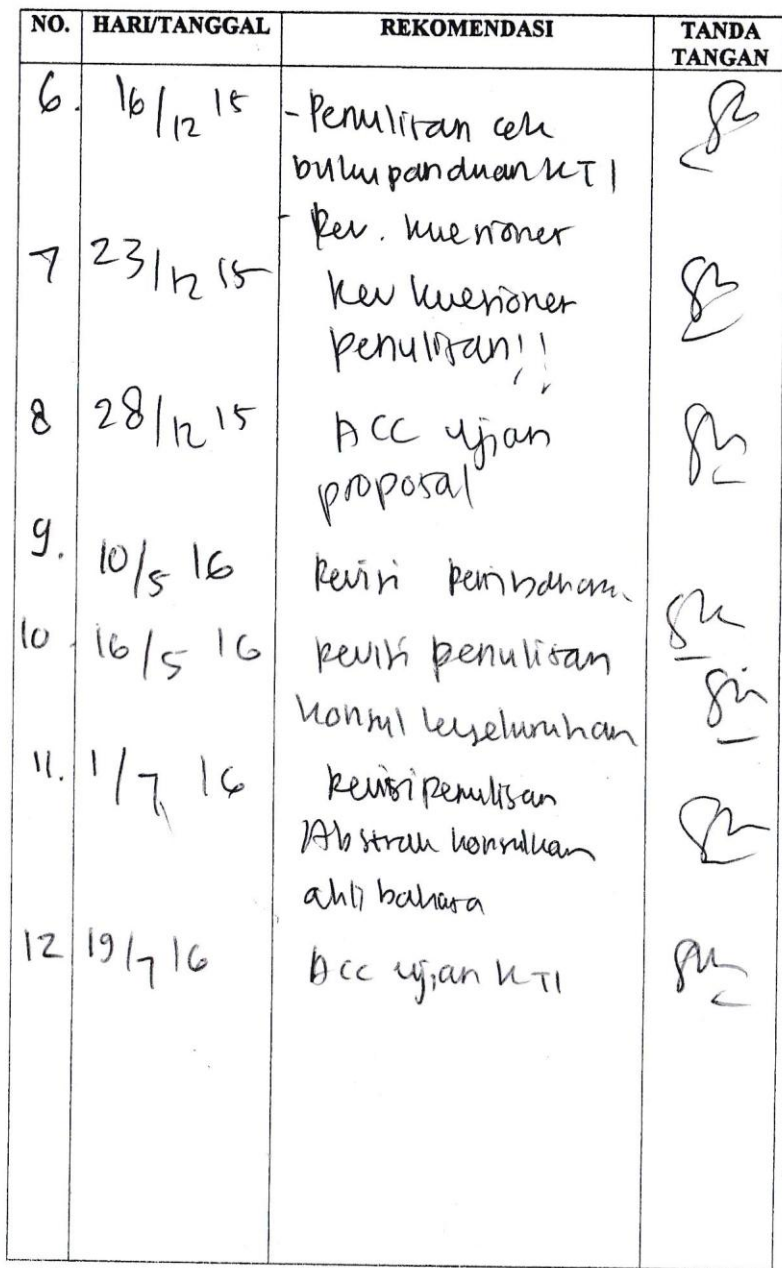 NO. HARI/TANGGAL REKOMENDASI TANDA TANGAN
6. 16/12 15 - Penulisan cek
buku panduan KTI
- Rev. kuesioner
7 23/12 15 Rev kuesioner
penulisan!!
8 28/12 15 ACC ujian
proposal
9. 10/5 16 Revisi pembahasan
10. 16/5 16 revisi penulisan
konsul keseluruhan
11. 1/7 16 Revisi penulisan
Abstrak konsulkan
ahli bahasa
12 19/7 16 Acc ujian KTI